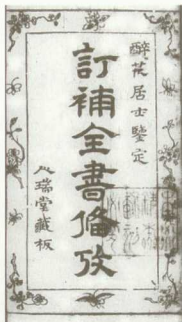 醉茫居士鑒定
訂補全書備攷
八瑞堂藏板